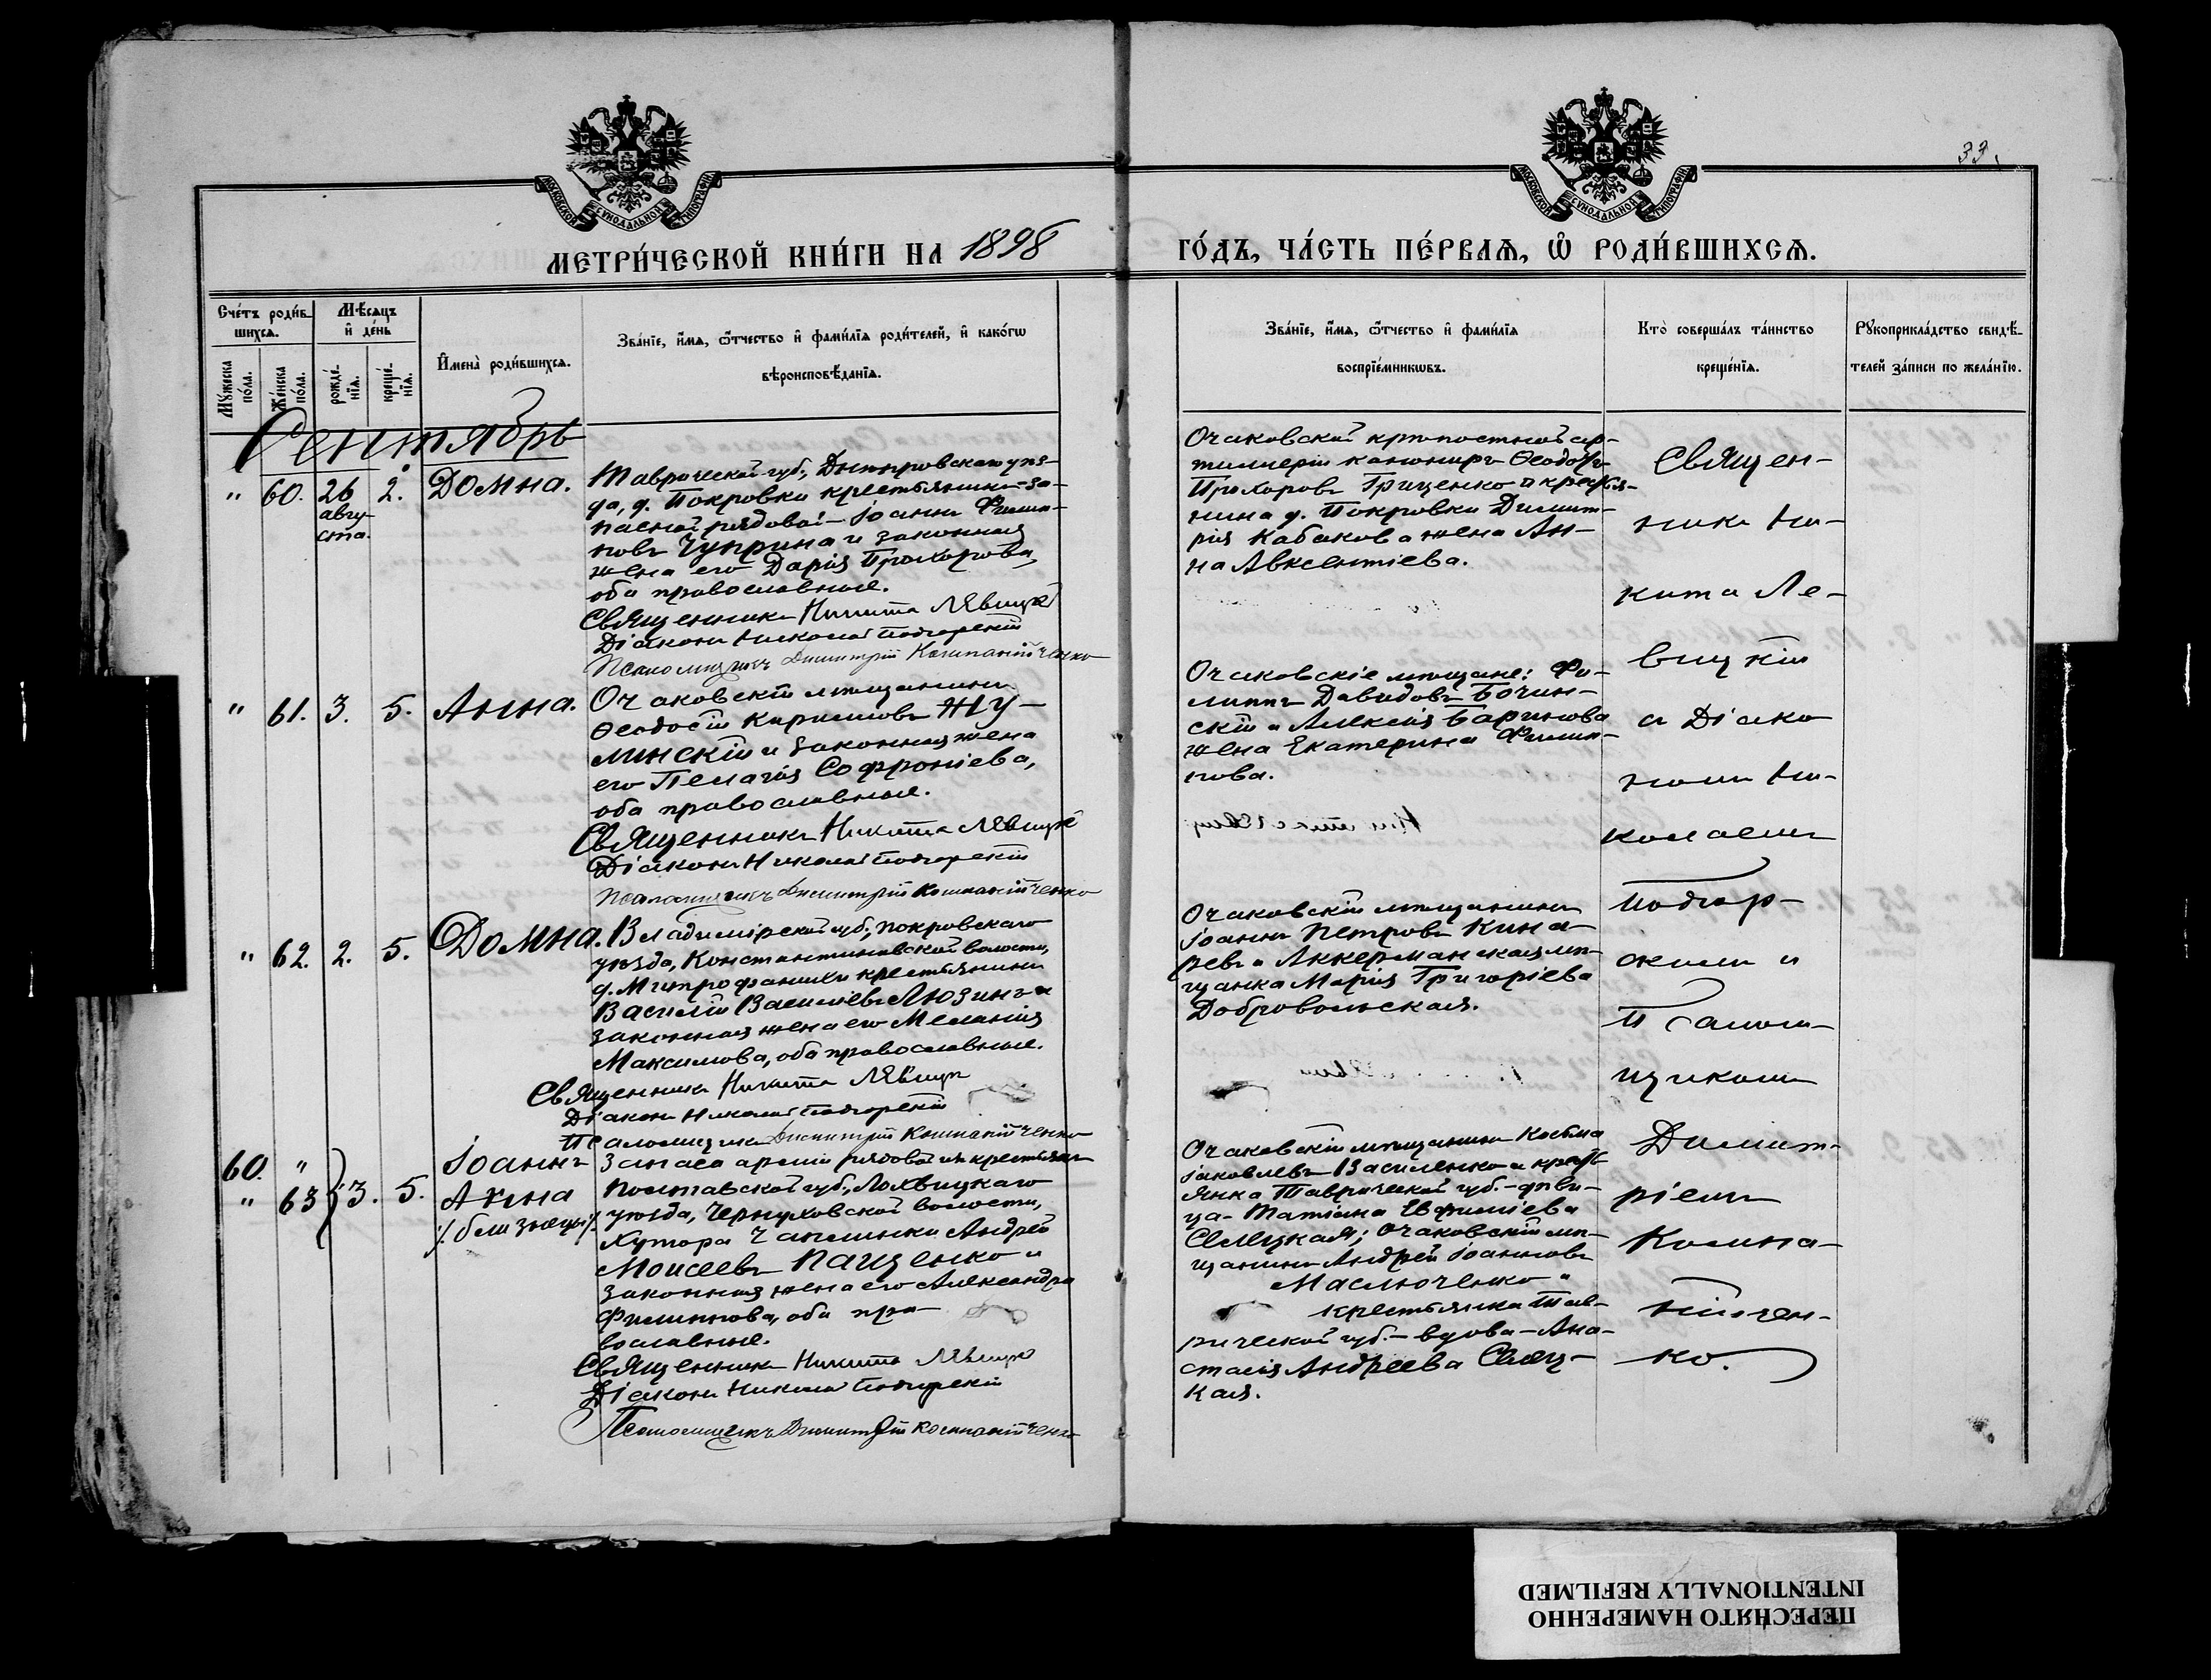 33.
МОСКОВСКОЙ СѴНОДАЛЬНОЙ ТИПОГРАФІИ
МОСКОВСКОЙ СѴНОДАЛЬНОЙ ТИПОГРАФІИ
МЕТРИ́ЧЕСКОЙ КНИ́ГИ НА 1898
ГО́ДЪ, ЧА́СТЬ ПЕ́РВАѦ, Ѡ҆ РОДИ́ВШИХСѦ.
Сче́тъ роди́в-
шихсѧ.
Мѣ́сѧцъ
и҆ де́нь
Мꙋ́жеска
по́ла.
Же́нска
по́ла.
рожде́-
нїѧ.
креще́-
нїѧ.
И҆мена̀ роди́вшихсѧ.
Зва́нїе, и҆́мѧ, ѻ҆́тчество и҆ фами́лїѧ роди́телей, и҆ како́гѡ
вѣроисповѣ́данїѧ.
Зва́нїе, и҆́мѧ, ѻ҆́тчество и҆ фами́лїѧ
воспрїе́мникѡвъ.
Кто̀ соверша́лъ та́инство
креще́нїѧ.
Рꙋкоприкла́дство свидѣ́-
телей за́писи по жела́нїю.
Сентябрь
" 60. 26 августа. 2. Домна.
Таврической губ., Днѣпровскаго уѣз-
да, д. Покровки крестьянинъ-за-
пасной рядовой - Іоаннъ Филип-
повъ Чуприна и законная
жена его Дарія Прохорова,
оба православные.
Священникъ Никита Лѣвицкій
Діаконъ Николай Подгорскій
Псаломщикъ Димитрій Компанійченко
Очаковской крѣпостной ар-
тиллеріи канониръ Ѳеодоръ
Прохоровъ Гриценко и кресть-
нина д. Покровки Димит-
рія Кабакова жена Ан-
на Авксентіева.
" 61. 3. 5. Анна.
Очаковскій мѣщанинъ
Ѳеодосій Кирилловъ Жу-
линскій и законная жена
его Пелагія Софроніева,
оба православные.
Священникъ Никита Лѣвицкій
Діаконъ Николай Подгорскій
Псаломщикъ Димитрій Компанійченко
Очаковскіе мѣщане: Фи-
липпъ Давидовъ Бочин-
скій и Алексія Баринова
жена Екатерина Филип-
пова.
" 62. 2. 5. Домна.
Владимірской губ., Покровскаго
уѣзда, Константиновской волости,
д. Митрофанихи крестьянинъ
Василій Васильевъ Люзинъ и
законная жена его Меланія
Максимова, оба православные.
Священникъ Никита Лѣвицкій
Діаконъ Николай Подгорскій
Псаломщикъ Димитрій Компанійченко
Очаковскій мѣщанинъ
Іоаннъ Петровъ Кина-
ревъ и Аккерманская мѣ-
щанка Марія Григоріева
Добровольская.
60. " Іоаннъ
" 63 3. 5. Анна
/:близнецы:/
Запаса арміи рядовой изъ крестьянъ
Полтавской губ., Лохвицкаго
уѣзда, Чернуховской волости,
хутора Чаплинки Андрей
Моисеевъ Пащенко и
законная жена его Александра
Филиппова, оба пра-
вославные.
Священникъ Никита Лѣвицкій
Діаконъ Николай Подгорскій
Псаломщикъ Димитрій Компанійченко
Очаковскій мѣщанинъ Косьма
Іаковлевъ Василенко и кресть-
янка Таврической губ. - дѣви-
ца - Татіана Евфиміева
Сѣлецкая; Очаковскій мѣ-
щанинъ Андрей Іоанновъ
Маслюченко и
крестьянка Тав-
рической губ. - вдова - Ана-
стасія Андреева Сѣлец-
кая.
Священ-
никъ Ни-
кита Ле-
вицкій
съ Діако
номъ Ни-
колаемъ
Подгор-
скимъ и
Псалом-
щикомъ
Димит-
ріемъ
Компа-
нійчен-
ко.
ПЕРЕСНЯТО НАМЕРЕННО
INTENTIONALLY REFILMED